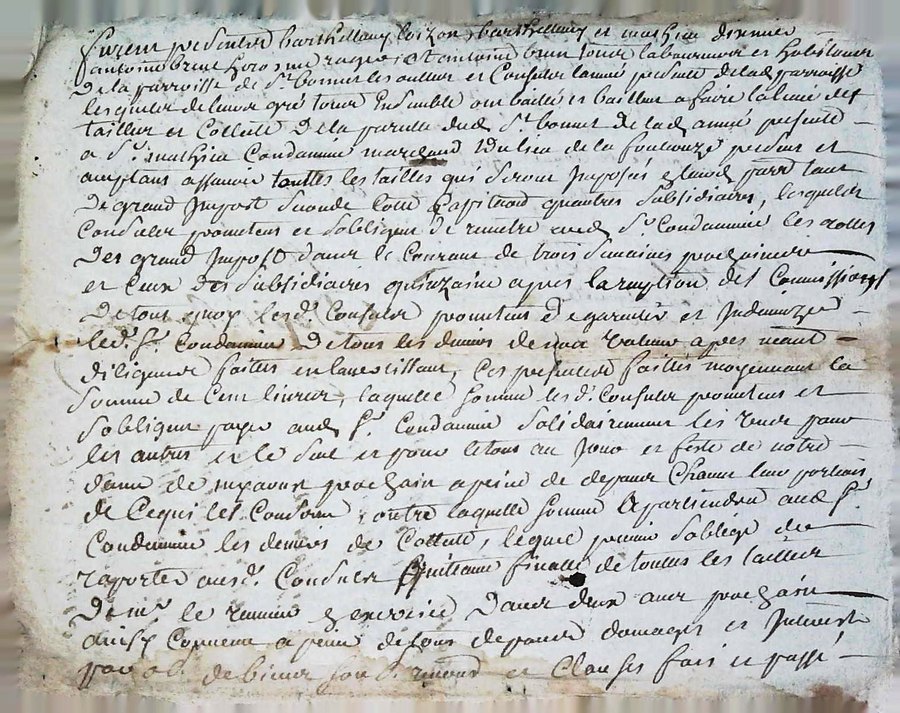 furent presents barthellemy loizon, barthellemy et mathieu
antoine brun laboureur et habitants
De la parroisse de St. bonnet et Consuls lannée presente de lad parroisse
lesquels de leur gré tous Ensemble ont baillé et baillent a faire la levée des
tailles et Collecte De la parcelle dud St. bonnet de lad année presente
a Sr. mathieu Condamine marchand du lieu de la foulouze present et
acceptant assavoir touttes les tailles qui seront Imposés et tant
De grand Impost seconde Cotte Capitaõn quartres subsidiaires, lesquels
Consuls promettent et sobligent de remetre aud Sr. Condamine les rolles
Des grand Impost dans le Courant de trois semaines prochaines
et Ceux Des subsidiaires quinzaine apres la reception des Commissions
De tout quoy lesd. Consuls promettent de garantir et Indemnizer
led. Sr. Condamine De tous les deniers de non valeur apres
diligences faittes en lavertissant, Ces presentes faittes moyennant la
somme de Cent livres, laquelle somme lesd. Consuls promettent et
sobligent payer aud Sr. Condamine solidairement les uns pour
les autres et le seul et pour le tout au Jour et feste de notre
dame de mars prochain a peine de depans Chacun leur portion
de Ce qui les Conserne, outre laquelle somme apartiendront aud Sr.
Condamine les deniers de Collecte, lequel promis soblege de
raporter ausd. Consuls quittance finalle de touttes les tailles
De me. le receveur exercice Dans deux ans prochain
a peine de tous depans domages et Interests
par ob. de biens soub. renond et Clauses fait et passé